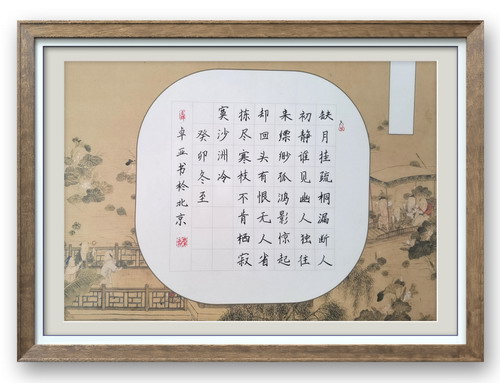 缺月挂疏桐漏断人
初静谁见幽人独往
来缥缈孤鸿影惊起
却回头有恨无人省
拣尽寒枝不肯栖寂
寞沙洲冷
癸卯冬至
卓亚书於北京